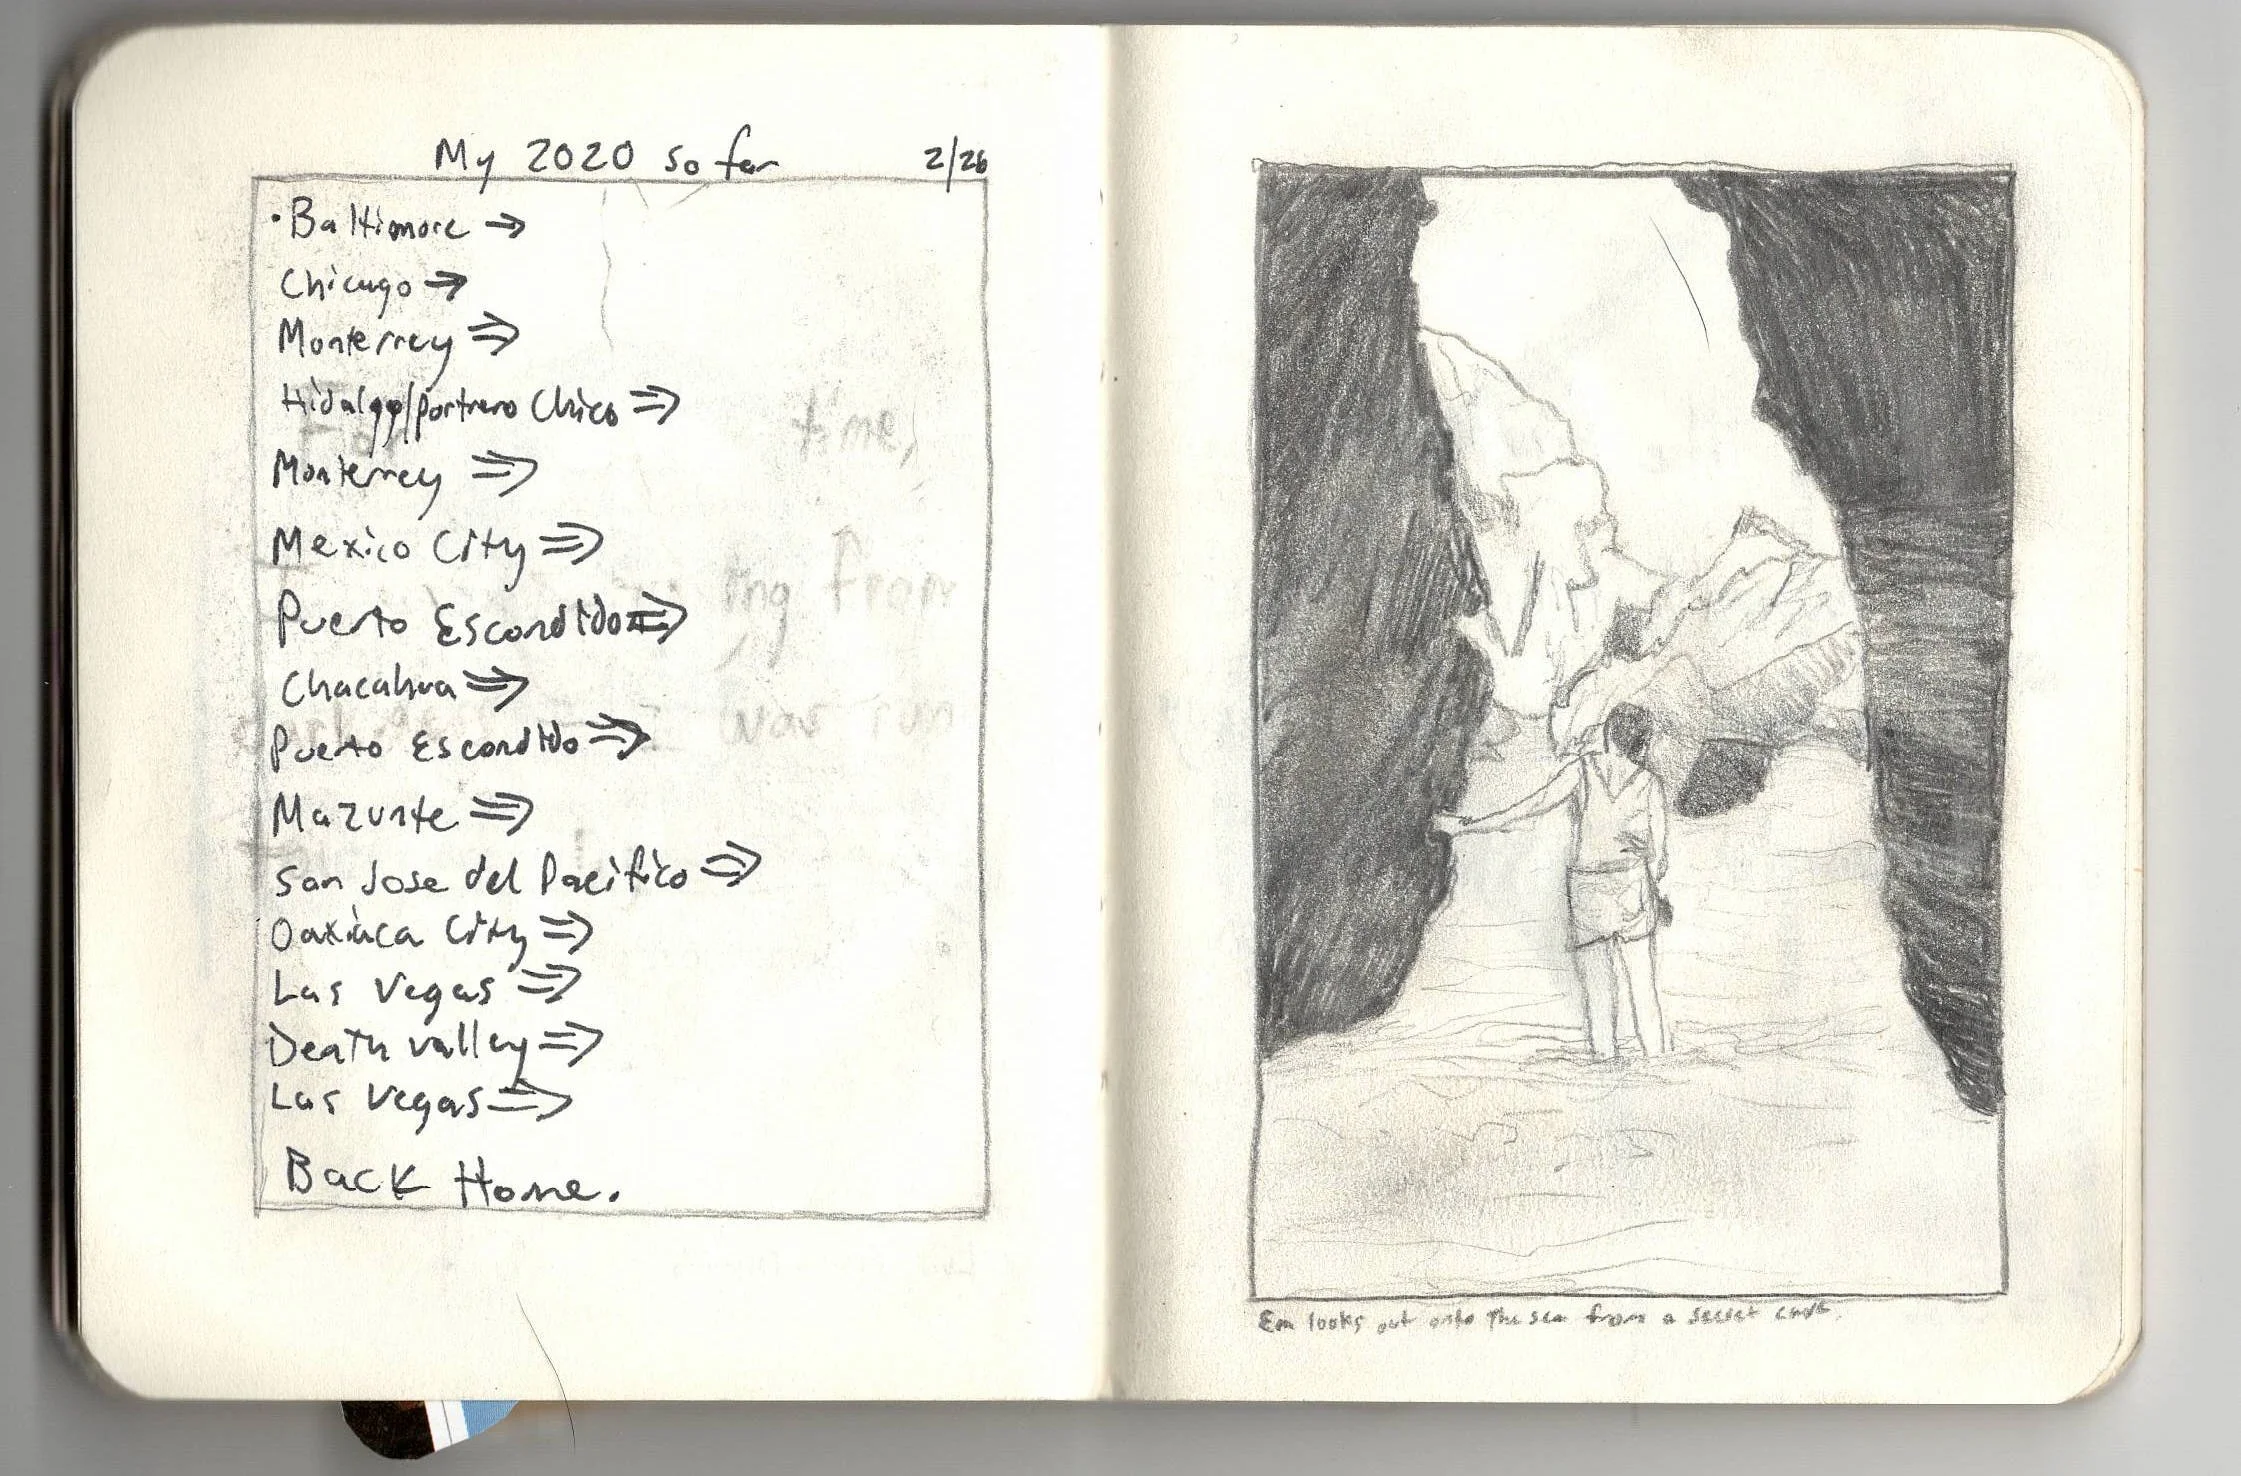 My 2020 so far 2/26
• Baltimore →
Chicago →
Monterrey ⇒
Hidalgo/portrero Chico ⇒
Monterrey ⇒
Mexico City ⇒
Puerto Escondido ⇒
Chacahua ⇒
Puerto Escondido ⇒
Mazunte ⇒
San Jose del Pacifico ⇒
Oaxaca City ⇒
Las Vegas ⇒
Death valley ⇒
Las Vegas ⇒
Back Home.
time,
ing from
was run
Em looks out onto the sea from a secret cave.